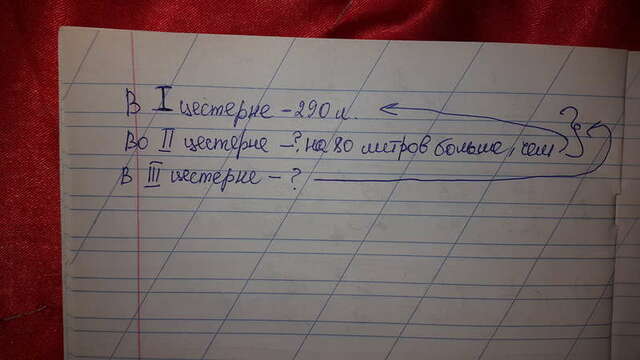 В I цестерне - 290 л.
Во II цестерне - ?, на 80 литров больше, чем ?
В III цестерне - ?